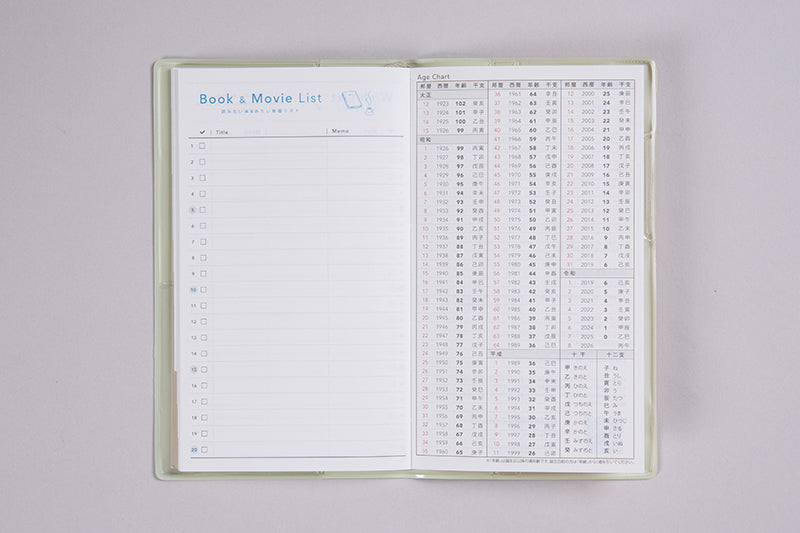 Book & Movie List
読みたい本&みたい映画リスト
✓ Title Memo
1
2
3
4
5
6
7
8
9
10
11
12
13
14
15
16
17
18
19
20
Age Chart
邦暦 西暦 年齢 干支
大正
12 1923 102 癸亥
13 1924 101 甲子
14 1925 100 乙丑
15 1926 99 丙寅
昭和
1 1926 99 丙寅
2 1927 98 丁卯
3 1928 97 戊辰
4 1929 96 己巳
5 1930 95 庚午
6 1931 94 辛未
7 1932 93 壬申
8 1933 92 癸酉
9 1934 91 甲戌
10 1935 90 乙亥
11 1936 89 丙子
12 1937 88 丁丑
13 1938 87 戊寅
14 1939 86 己卯
15 1940 85 庚辰
16 1941 84 辛巳
17 1942 83 壬午
18 1943 82 癸未
19 1944 81 甲申
20 1945 80 乙酉
21 1946 79 丙戌
22 1947 78 丁亥
23 1948 77 戊子
24 1949 76 己丑
25 1950 75 庚寅
26 1951 74 辛卯
27 1952 73 壬辰
28 1953 72 癸巳
29 1954 71 甲午
30 1955 70 乙未
31 1956 69 丙申
32 1957 68 丁酉
33 1958 67 戊戌
34 1959 66 己亥
35 1960 65 庚子
邦暦 西暦 年齢 干支
36 1961 64 辛丑
37 1962 63 壬寅
38 1963 62 癸卯
39 1964 61 甲辰
40 1965 60 乙巳
41 1966 59 丙午
42 1967 58 丁未
43 1968 57 戊申
44 1969 56 己酉
45 1970 55 庚戌
46 1971 54 辛亥
47 1972 53 壬子
48 1973 52 癸丑
49 1974 51 甲寅
50 1975 50 乙卯
51 1976 49 丙辰
52 1977 48 丁巳
53 1978 47 戊午
54 1979 46 己未
55 1980 45 庚申
56 1981 44 辛酉
57 1982 43 壬戌
58 1983 42 癸亥
59 1984 41 甲子
60 1985 40 乙丑
61 1986 39 丙寅
62 1987 38 丁卯
63 1988 37 戊辰
64 1989 36 己巳
平成
1 1989 36 己巳
2 1990 35 庚午
3 1991 34 辛未
4 1992 33 壬申
5 1993 32 癸酉
6 1994 31 甲戌
7 1995 30 乙亥
8 1996 29 丙子
9 1997 28 丁丑
10 1998 27 戊寅
11 1999 26 己卯
邦暦 西暦 年齢 干支
12 2000 25 庚辰
13 2001 24 辛巳
14 2002 23 壬午
15 2003 22 癸未
16 2004 21 甲申
17 2005 20 乙酉
18 2006 19 丙戌
19 2007 18 丁亥
20 2008 17 戊子
21 2009 16 己丑
22 2010 15 庚寅
23 2011 14 辛卯
24 2012 13 壬辰
25 2013 12 癸巳
26 2014 11 甲午
27 2015 10 乙未
28 2016 9 丙申
29 2017 8 丁酉
30 2018 7 戊戌
31 2019 6 己亥
令和
1 2019 6 己亥
2 2020 5 庚子
3 2021 4 辛丑
4 2022 3 壬寅
5 2023 2 癸卯
6 2024 1 甲辰
7 2025 0 乙巳
8 2026 丙午
十干 十二支
甲 きのえ
乙 きのと
丙 ひのえ
丁 ひのと
戊 つちのえ
己 つちのと
庚 かのえ
辛 かのと
壬 みずのえ
癸 みずのと
子 ね
丑 うし
寅 とら
卯 う
辰 たつ
巳 み
午 うま
未 ひつじ
申 さる
酉 とり
戌 いぬ
亥 い